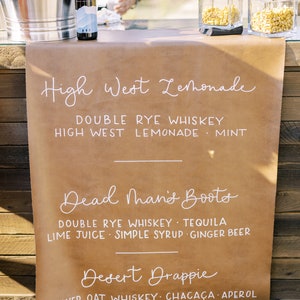 High West Lemonade
DOUBLE RYE WHISKEY
HIGH WEST LEMONADE · MINT
Dead Man's Boots
DOUBLE RYE WHISKEY · TEQUILA
LIME JUICE · SIMPLE SYRUP · GINGER BEER
Desert Drappie
OAT WHISKEY · CHACAÇA · APEROL